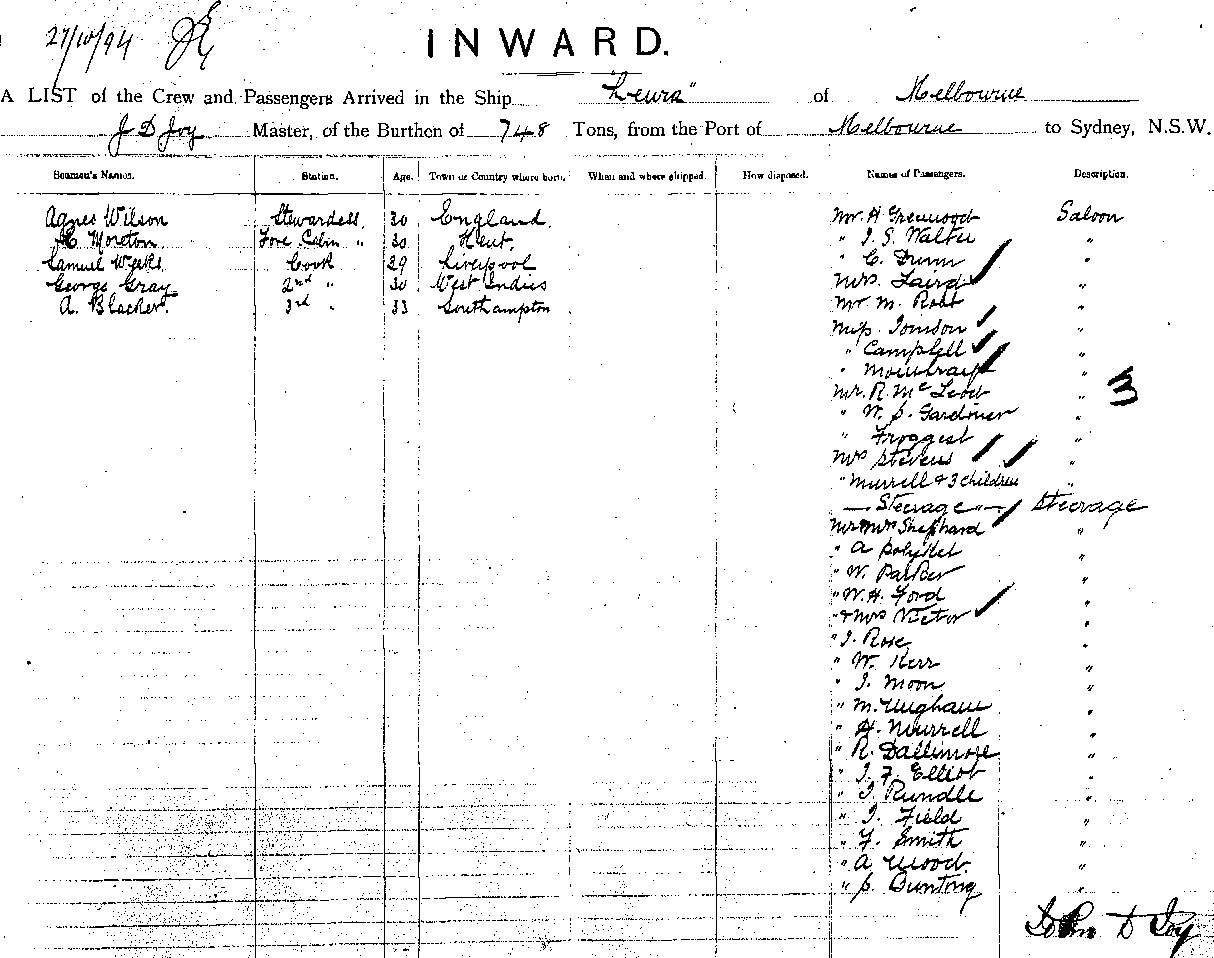 27/10/94
INWARD.
A LIST of the Crew and Passengers Arrived in the Ship "Leura" of Melbourne
J D Joy Master, of the Burthen of 748 Tons, from the Port of Melbourne to Sydney, N.S.W.
Seamen's Names. Station. Age. Town or Country where born. When and where shipped. How disposed. Names of Passengers. Description.
Agnes Wilson Stewardess 30 England. Mr. H Greenwood Saloon
Moreton Fore Cabin " 30 Kent. " J. S. Walter "
Samuel Weeks Cook 29 Liverpool " C. Dunn "
George Gray 2nd " 30 West Indies Mrs. Laird "
A. Blacker. 3rd " 33 Southampton Mr M. Robt "
Miss. Tomson "
" Campbell "
" "
Mr. R. McLeod " 3
" W. S. Gardiner "
" Froggest "
Mrs Stevens "
" Murrell & 3 children "
— Steerage — Steerage
Mr Mrs Shephard "
" A "
" W. Parker "
" W. H. Ford "
" & Mrs Victor "
" J. Rose "
" W. Kerr "
" J. Moon "
" M. "
" H. Murrell "
" R. Dallimore "
" J. F. Elliot "
" J. Rundle "
" J. Field "
" F. Smith "
" A Wood "
" P. Buntong "
John D Joy